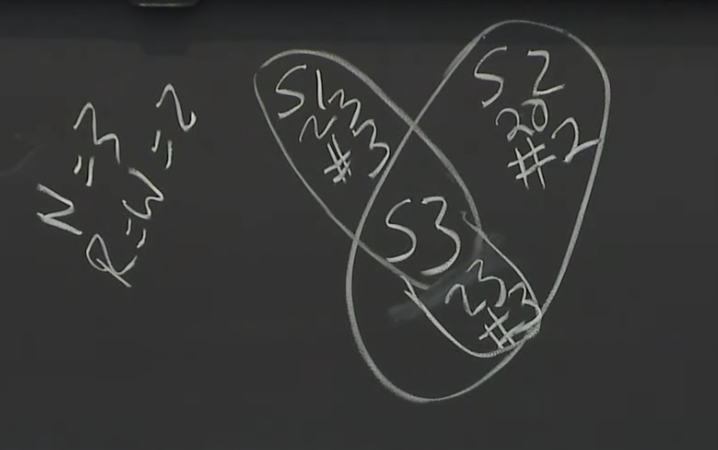 N=3
R=W=2
S1
23
#3
S2
20
#2
S3
23
#3